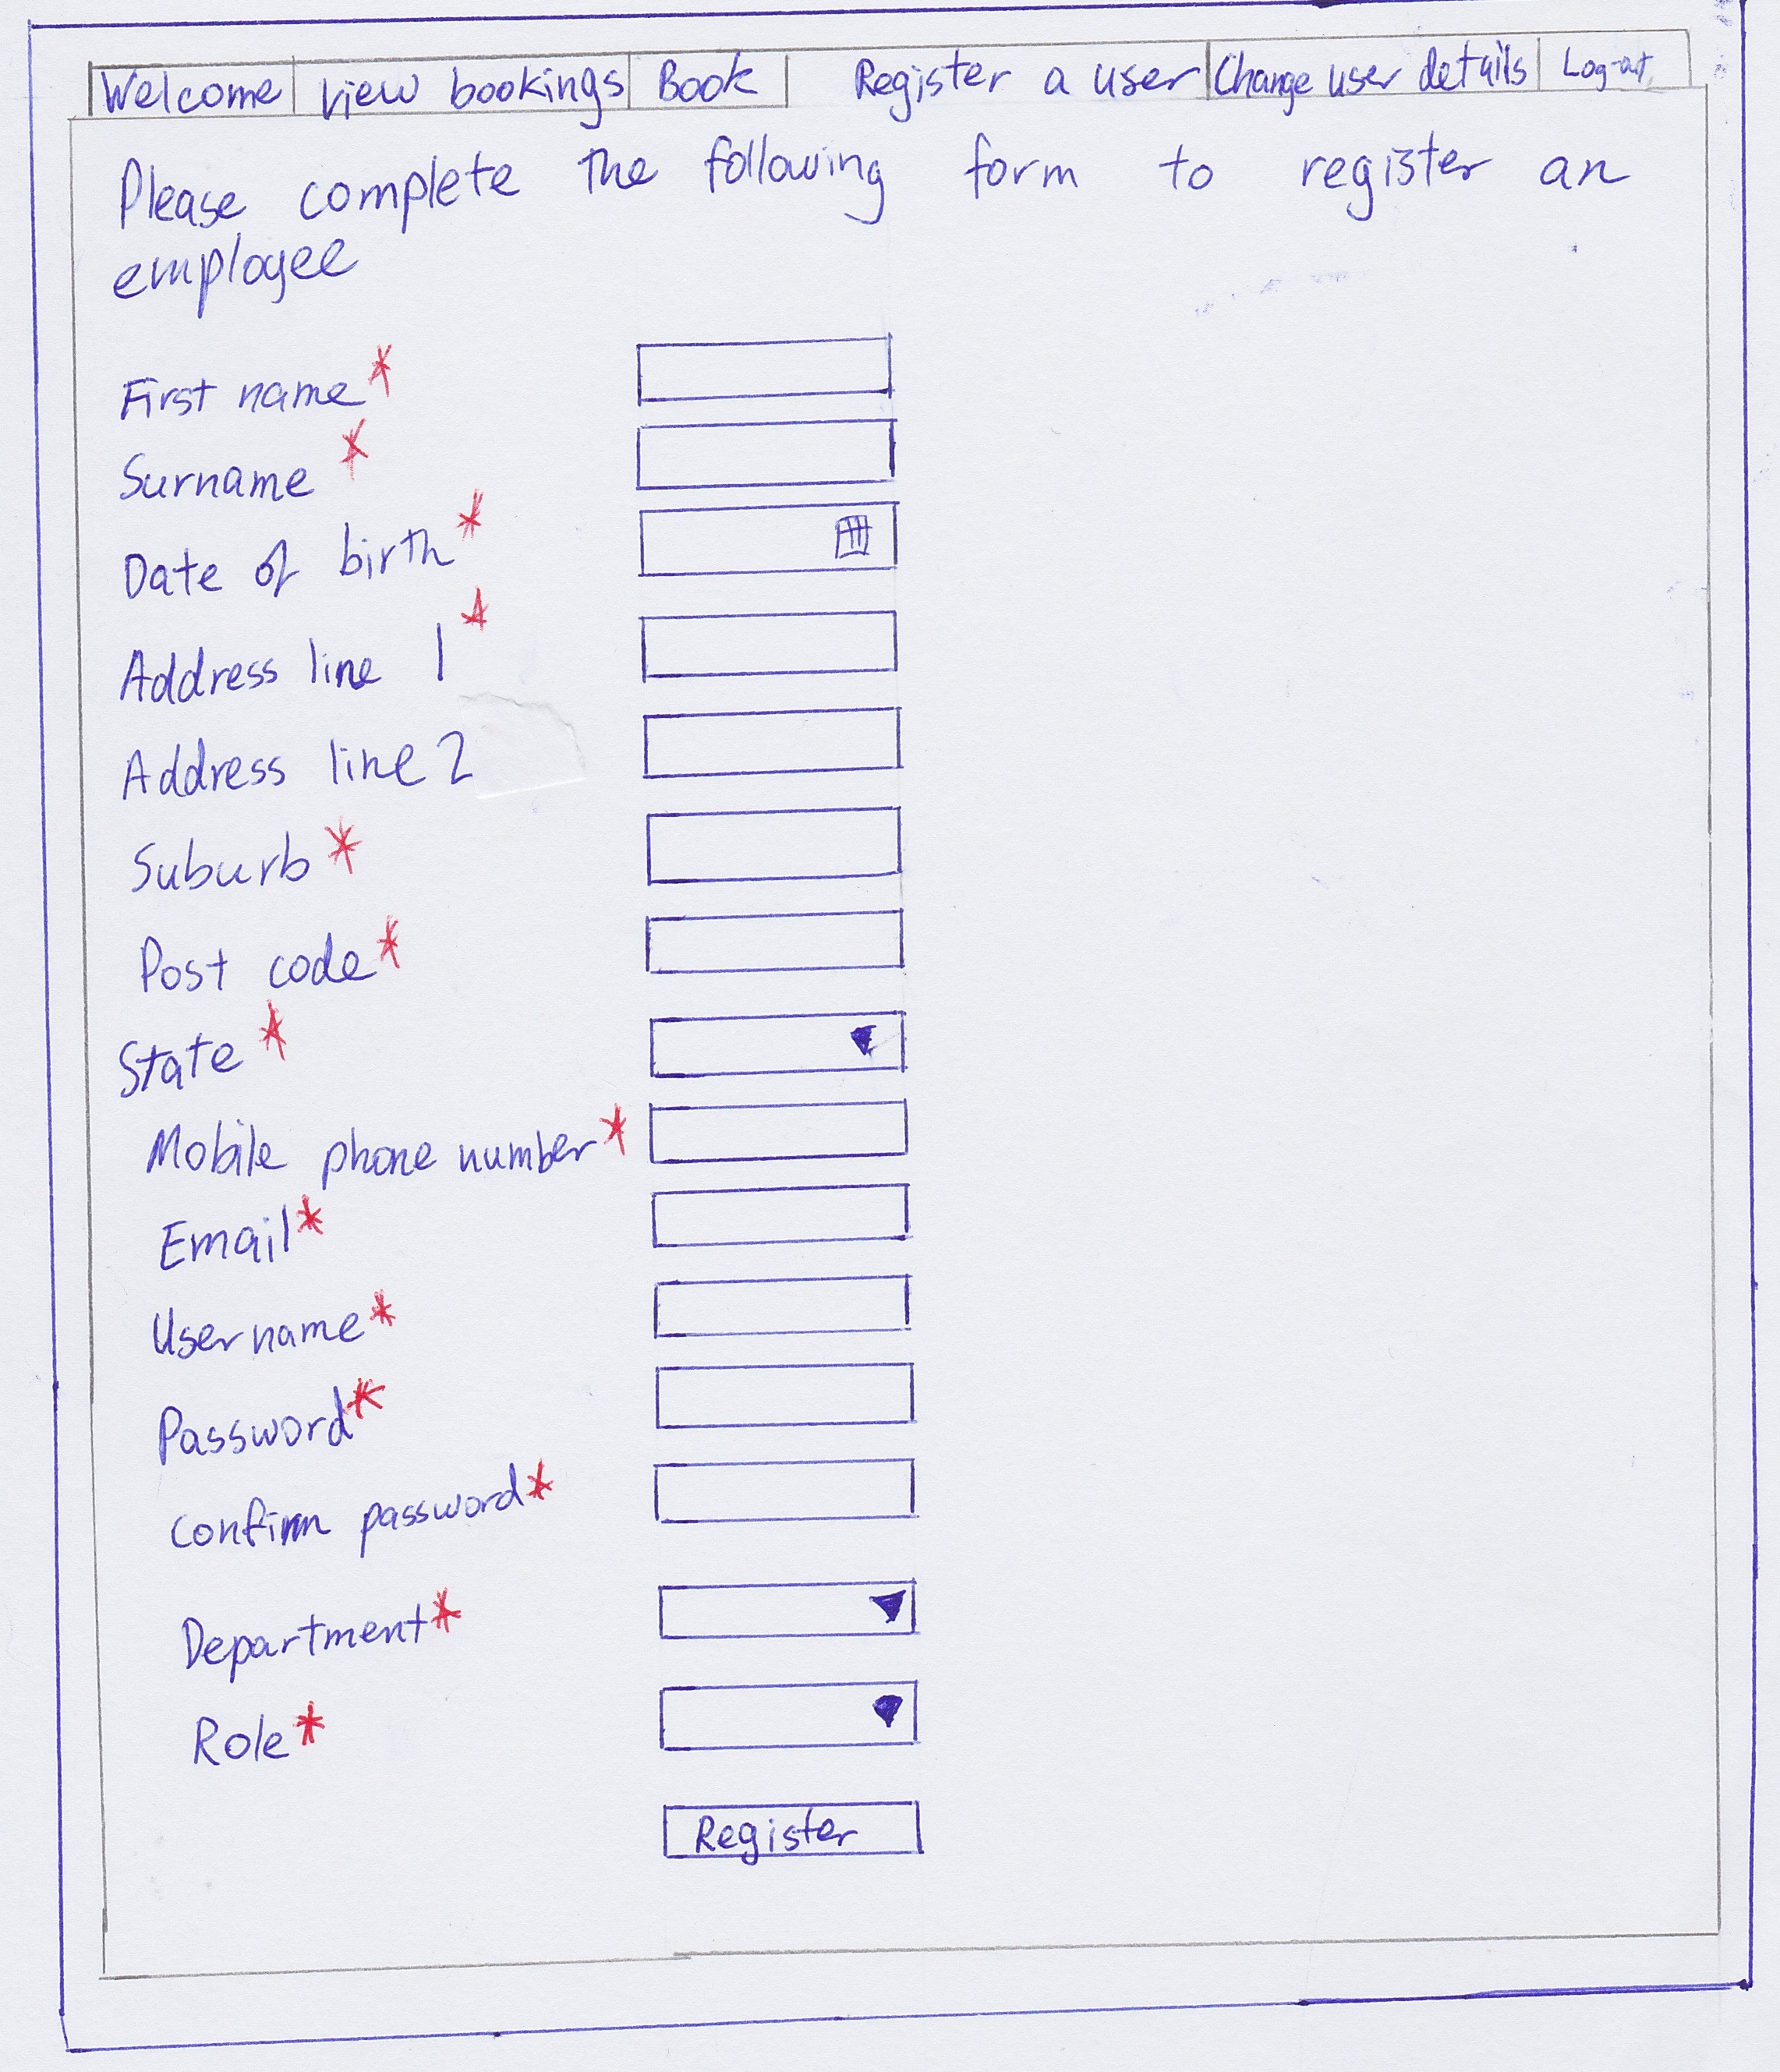 Welcome View bookings Book Register a user Change user details Log-out
Please complete the following form to register an
employee
First name*
Surname*
Date of birth*
Address line 1*
Address line 2
Suburb*
Post code*
State*
Mobile phone number*
Email*
Username*
Password*
Confirm password*
Department*
Role*
Register